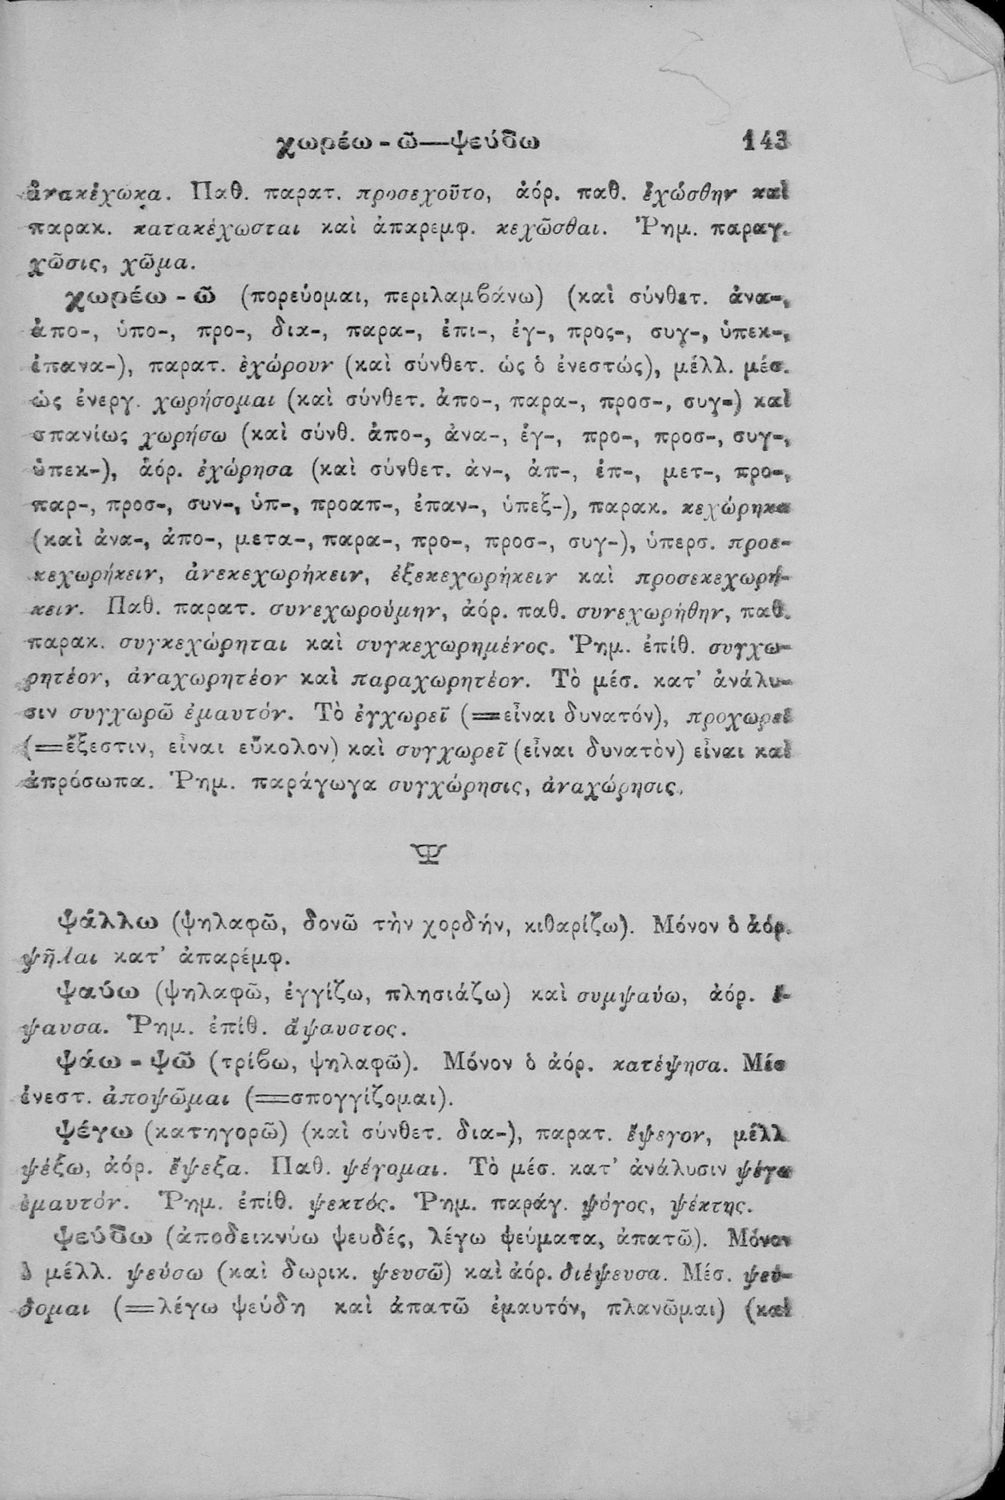 χωρέω - ῶ—ψεύδω 143
ἀνακέχωκα. Παθ. παρατ. προσεχοῦτο, ἀόρ. παθ. ἐχώσθην καὶ
παρακ. κατακέχωσται καὶ ἀπαρεμφ. κεχῶσθαι. Ῥημ. παραγ.
χῶσις, χῶμα.
χωρέω - ῶ (πορεύομαι, περιλαμβάνω) (καὶ σύνθετ. ἀνα-,
ἀπο-, ὑπο-, προ-, δια-, παρα-, ἐπι-, ἐγ-, προς-, συγ-, ὑπεκ-,
ἐπανα-), παρατ. ἐχώρουν (καὶ σύνθετ. ὡς ὁ ἐνεστώς), μέλλ. μέσ.
ὡς ἐνεργ. χωρήσομαι (καὶ σύνθετ. ἀπο-, παρα-, προσ-, συγ-) καὶ
σπανίως χωρήσω (καὶ σύνθ. ἀπο-, ἀνα-, ἐγ-, προ-, προσ-, συγ-,
ὑπεκ-), ἀόρ. ἐχώρησα (καὶ σύνθετ. ἀν-, ἀπ-, ἐπ-, μετ-, προ-,
παρ-, προσ-, συν-, ὑπ-, προαπ-, ἐπαν-, ὑπεξ-), παρακ. κεχώρηκα
(καὶ ἀνα-, ἀπο-, μετα-, παρα-, προ-, προσ-, συγ-), ὑπερσ. προε-
κεχωρήκειν, ἀνεκεχωρήκειν, ἐξεκεχωρήκειν καὶ προσεκεχωρή-
κειν. Παθ. παρατ. συνεχωρούμην, ἀόρ. παθ. συνεχωρήθην, παθ.
παρακ. συγκεχώρηται καὶ συγκεχωρημένος. Ῥημ. ἐπίθ. συγχω-
ρητέον, ἀναχωρητέον καὶ παραχωρητέον. Τὸ μέσ. κατ' ἀνάλυ-
σιν συγχωρῶ ἐμαυτόν. Τὸ ἐγχωρεῖ (=εἶναι δυνατόν), προχωρεῖ
(=ἔξεστιν, εἶναι εὔκολον) καὶ συγχωρεῖ (εἶναι δυνατὸν) εἶναι καὶ
ἀπρόσωπα. Ῥημ. παράγωγα συγχώρησις, ἀναχώρησις.
Ψ
ψάλλω (ψηλαφῶ, δονῶ τὴν χορδήν, κιθαρίζω). Μόνον ὁ ἀόρ.
ψῆλαι κατ' ἀπαρέμφ.
ψαύω (ψηλαφῶ, ἐγγίζω, πλησιάζω) καὶ συμψαύω, ἀόρ. ἔ-
ψαυσα. Ῥημ. ἐπίθ. ἄψαυστος.
ψάω - ψῶ (τρίβω, ψηλαφῶ). Μόνον ὁ ἀόρ. κατέψησα. Μέσ
ἐνεστ. ἀποψῶμαι (=σπογγίζομαι).
ψέγω (κατηγορῶ) (καὶ σύνθετ. δια-), παρατ. ἔψεγον, μέλλ
ψέξω, ἀόρ. ἔψεξα. Παθ. ψέγομαι. Τὸ μέσ. κατ' ἀνάλυσιν ψέγω
ἐμαυτόν. Ῥημ. ἐπίθ. ψεκτός. Ῥημ. παράγ. ψόγος, ψέκτης.
ψεύδω (ἀποδεικνύω ψευδές, λέγω ψεύματα, ἀπατῶ). Μόνον
ὁ μέλλ. ψεύσω (καὶ δωρικ. ψευσῶ) καὶ ἀόρ. διέψευσα. Μέσ. ψεύ-
δομαι (=λέγω ψεύδη καὶ ἀπατῶ ἐμαυτόν, πλανῶμαι) (καὶ